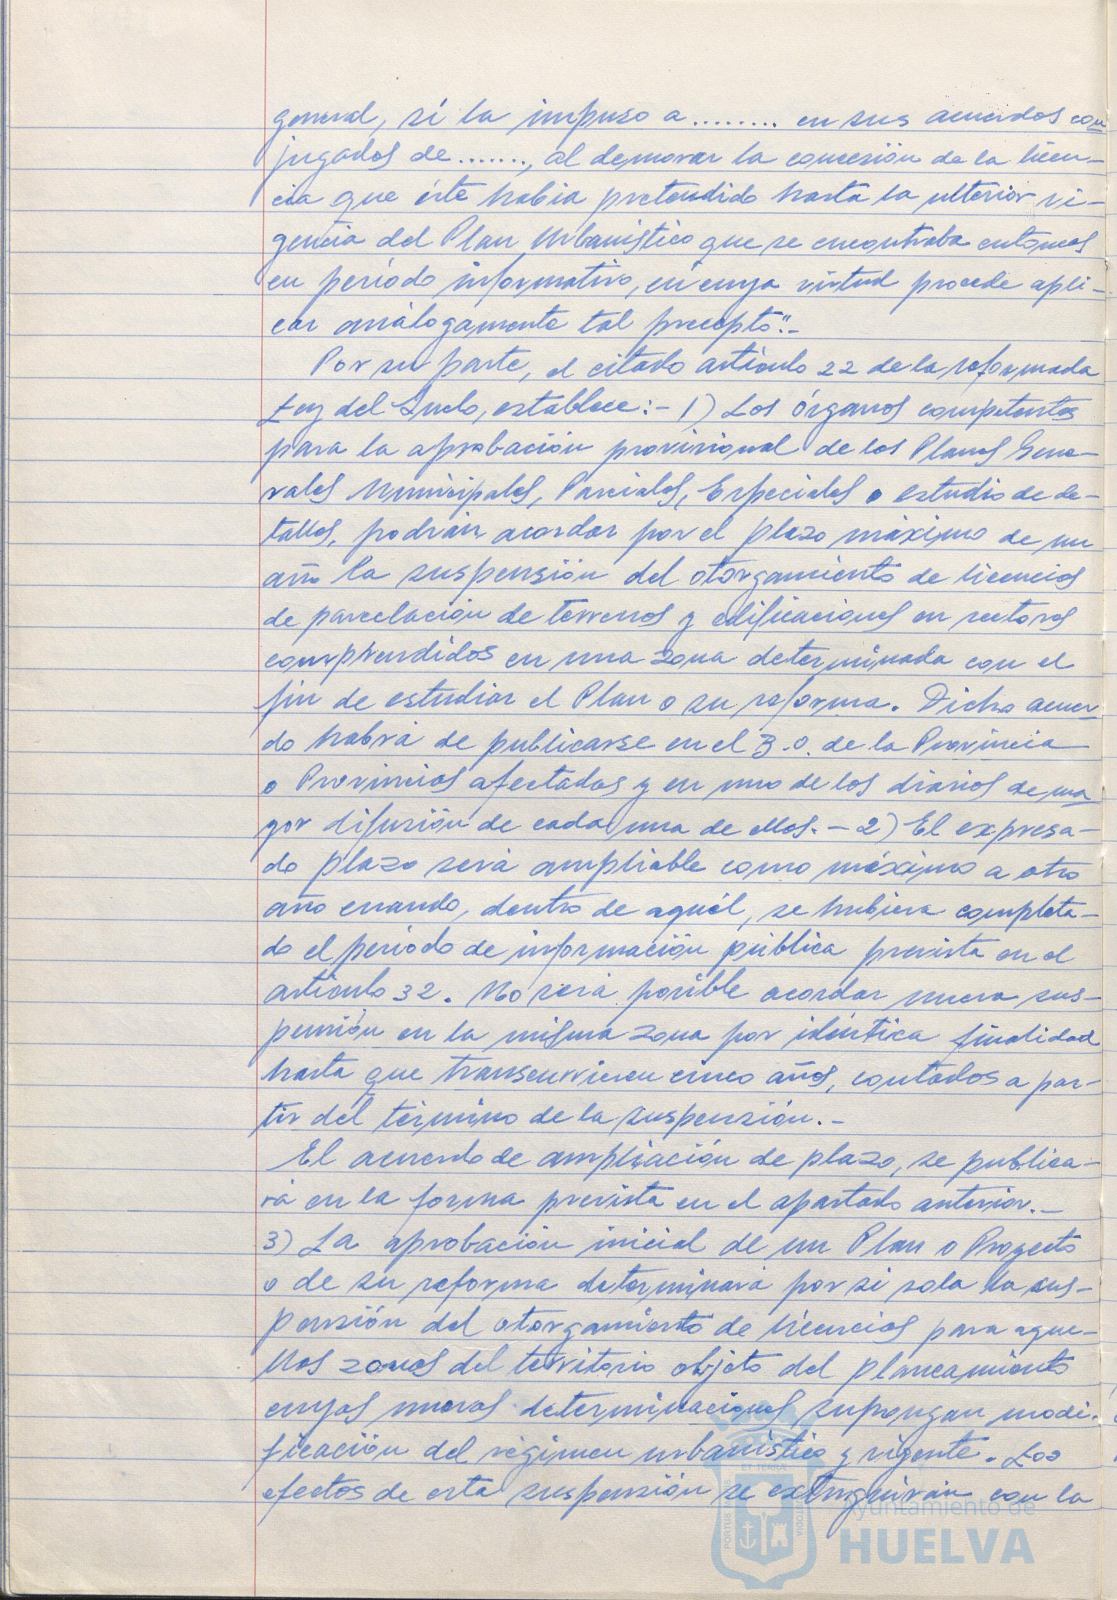 general, sí la impuso a ........ en sus acuerdos con
jugados de ......., al demorar la concesión de la licen-
cia que éste había pretendido hasta la ulterior vi-
gencia del Plan Urbanístico que se encontraba entonces
en período informativo, en cuya virtud procede apli-
car análogamente tal precepto".-
Por su parte, el citado artículo 22 de la reformada
Ley del Suelo, establece:- 1) Los órganos competentes
para la aprobación provisional de los Planes Gene-
rales Municipales, Parciales, Especiales o estudio de de-
talles, podrán acordar por el plazo máximo de un
año la suspensión del otorgamiento de licencias
de parcelación de terrenos y edificaciones en sectores
comprendidos en una zona determinada con el
fin de estudiar el Plan o su reforma. Dicho acuer-
do habrá de publicarse en el B.O. de la Provincia
o Provincias afectadas y en uno de los diarios de ma
yor difusión de cada una de ellas. - 2) El expresa-
do plazo será ampliable como máximo a otro
año cuando, dentro de aquél, se hubiera completa-
do el período de información pública prevista en el
artículo 32. No será posible acordar nueva sus-
pensión en la misma zona por idéntica finalidad
hasta que transcurriesen cinco años, contados a par-
tir del término de la suspensión. -
El acuerdo de ampliación de plazo, se publica-
rá en la forma prevista en el apartado anterior.-
3) La aprobación inicial de un Plan o Proyecto
o de su reforma determinará por sí sola la sus-
pensión del otorgamiento de licencias para aque-
llas zonas del territorio objeto del planeamiento
cuyas nuevas determinaciones supongan modi-
ficación del régimen urbanístico y vigente. Los
efectos de esta suspensión se extinguirán con la
Ayuntamiento de
HUELVA